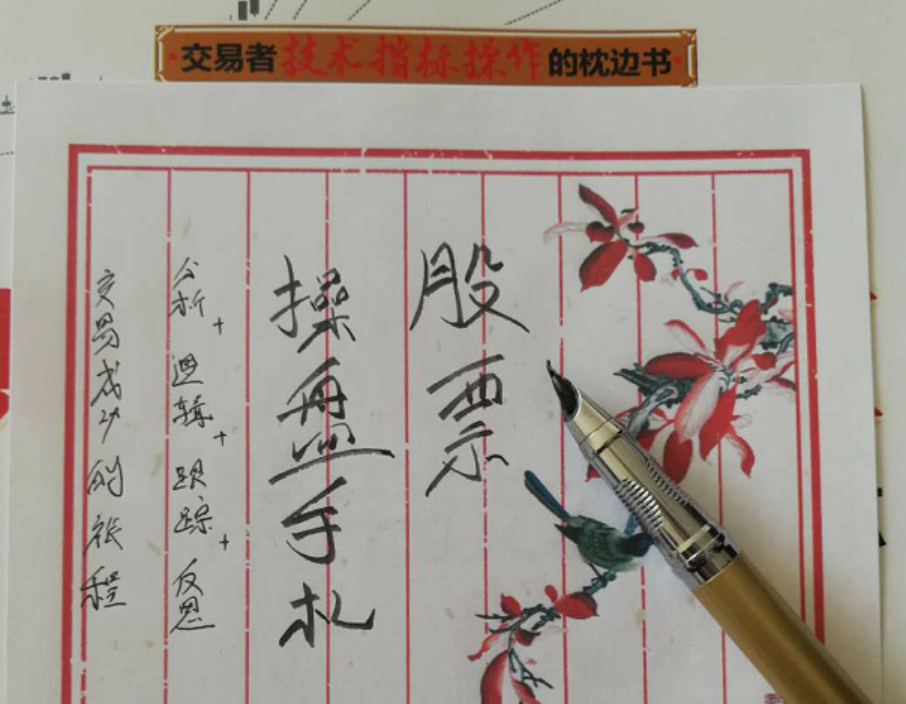 交易者技术指标操作的枕边书
股票
操盘手札
分析+逻辑+跟踪+反思
交易成功剖张程